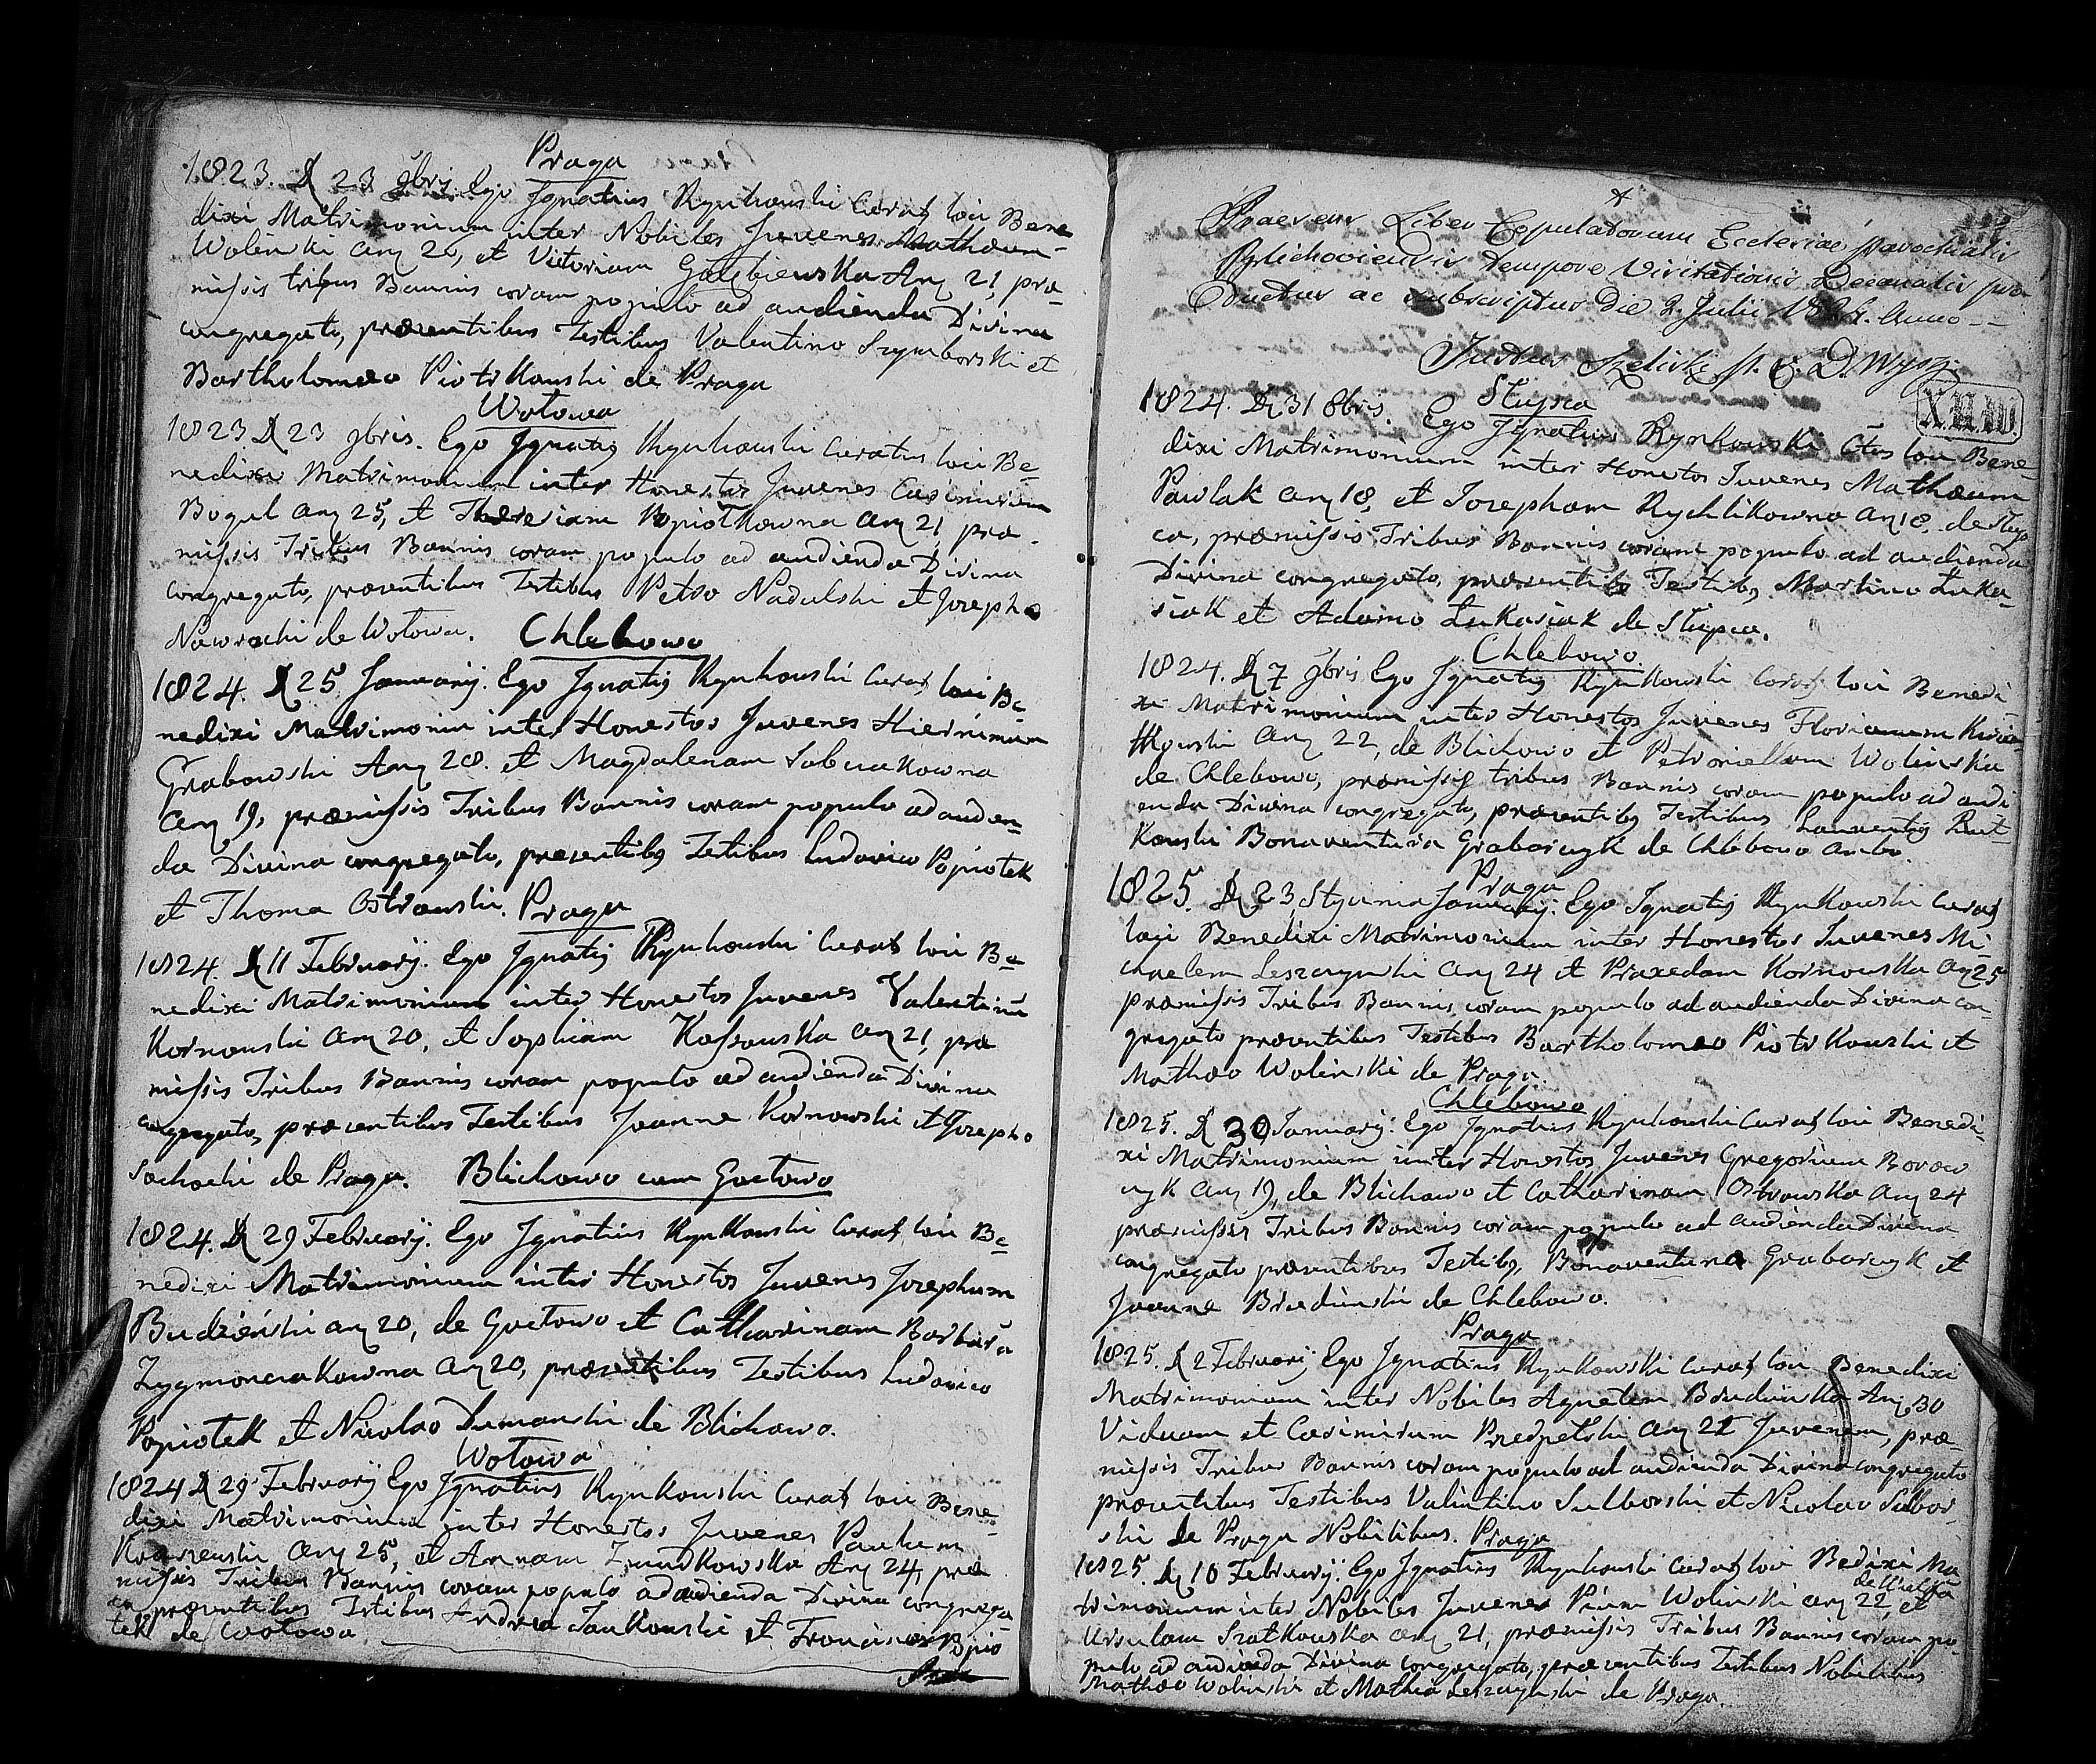 Praga
1823. D 23 9bris. Ego Ignatius Rynkowski Curat loci Bene
dixi Matrimonium inter Nobiles Juvenes Mathæum
Wolinski an 26, et Victoriam Gołębiewska An 21, præ-
missis tribus Bannis coram populo ad audienda Divina
congregato, præsentibus Testibus Valentino Szymborski et
Bartholomæo Piotrkowski de Praga
Wołowa
1823 D 23 9bris. Ego Ignatig Rynkowski Curatus loci Be=
nedixi Matrimonium inter Honestos Juvenes Casimirum
Bogul an 25, et Theresiam Popiołkowna an 21, præ-
missis Tribus Bannis coram populo ad audienda Divina
congregato, præsentibus Testibus Petro Nadulski et Josepho
Nawrocki de Wołowa.
Chlebowo
1824. D 25 Januarij. Ego Ignatig Rynkowski Curat loci Be=
nedixi Matrimoniu inter Honestos Juvenes Hiernimum
Grabowski An 28. et Magdalenam Sobczakowna
an 19, præmissis Tribus Bannis coram populo ad audien=
da Divina congregato, presentibg Testibus Ludovico Popiołek
et Thoma Ostrowski.
Praga
1824. D 11 Februarij. Ego Ignatig Rynkowski Curat loci Be=
nedixi Matrimonium inter Honestos Juvenes Valentinū
Kornowski An 20, et Sophiam Kossowska an 21, præ
missis Tribus Bannis coram populo ad audienda Divina
congregato, præsentibus Testibus Joanne Kornowski et Josepho
Sochocki de Praga.
Blichowo cum Goctowo
1824. D 29 Februarij. Ego Ignatius Rynkowski Curat loci Be=
nedixi Matrimonium inter Honestos Juvenes Josephum
Budzinski an 20, de Goctowo et Catharinam Barbara
Zygmonciakowna an 20, præsentibus Testibus Ludovico
Popiołek et Nicolao Dumanski de Blichowo.
Wołowa
1824 D 29 Februarij Ego Ignatius Rynkowski Curat loci Bene=
dixi Matrimonium inter Honestos Juvenes Paulum
an 25, et Annam An 24, præ
missis Tribus Bannis coram populo ad audienda Divina congrega
to præsentibus Testibus Andrea Jankowski et Francisco Popio
łek de Wołowa.
Praesens Liber Copulatorum Ecclesiae Parochialis
Blichoviensis tempore Visitationis Decanalis pro-
ductus ac subscriptus Die 2 Julii 1824. Anno --
Justus
X.II.10.
Słupca
1824. D 31 8bris. Ego Ignatius Rynkowski Ctus loci Bene=
dixi Matrimonium inter Honestos Juvenes Mathæum
Pawlak an 18, et Josepham Rychlikowna an 18, de Słup
ca, præmissis Tribus Bannis coram populo ad audienda
Divina congregato, præsentibg Testibg Martino Łuka=
siak et Adamo Łukasiak de Słupca.
Chlebowo.
1824. D 7 9bris Ego Ignatig Rynkowski Curat loci Benedi
xi Matrimonium inter Honestos Juvenes Florianum
an 22, de Blichowo et Petroniellam Wolinska
de Chlebowo, præmissig tribus Bannis coram populo ad audi
enda Divina congregato, præsentibg Testibus Laurentig Rut=
kowski Bonaventura Grabarczyk de Chlebowo ambo.
Praga
1825. D 23 Stycznia Januarij. Ego Ignatig Rynkowski Curat
loci Benedixi Matrimonium inter Honestos Juvenes Mi=
chaelem Leszczynski an 24 et Praxedam Kornowska an 25
præmissis Tribus Bannis, coram populo ad audienda Divina con=
gregato præsentibus Testibus Bartholomæo Piotrkowski et
Mathæo Wolinski de Praga.
Chlebowo
1825. D 30 Januarij. Ego Ignatius Rynkowski Curat loci Benedi-
xi Matrimonium inter Honestos Juvenes Gregorium Borow
czyk An 19, de Blichowo et Catharinam Ostrowska an 24
præmissis Tribus Bannis coram populo ad audienda Divina
congregato præsentibus Testibg Bonaventura Grabarczyk et
Joanne Brudzinski de Chlebowo.
Praga
1825. D 2 Februarij Ego Ignatius Rynkowski Curat loci Benedixi
Matrimonium inter Nobiles Agnetem Brudzinska An 30
Viduam et Casimirum Przedpełski an 22 Juvenem, præ=
missis Tribus Bannis coram populo ad audienda Divina congregato
præsentibus Testibus Valentino Sulborski et Nicolao Sulbor=
ski de Praga Nobilibus.
Praga
1825. D 10 Februarij. Ego Ignatius Rynkowski Curat loci Bedixi Ma
trimonium inter Nobiles Juvenes Pium Wolinski an 22, et
Ursulam Szatkowska an 21, præmissis Tribus Bannis coram po=
pulo ad audienda Divina congregato, præsentibus Testibus Nobilibus
Mathæo Wolinski et Mathia Leszczynski de Praga.